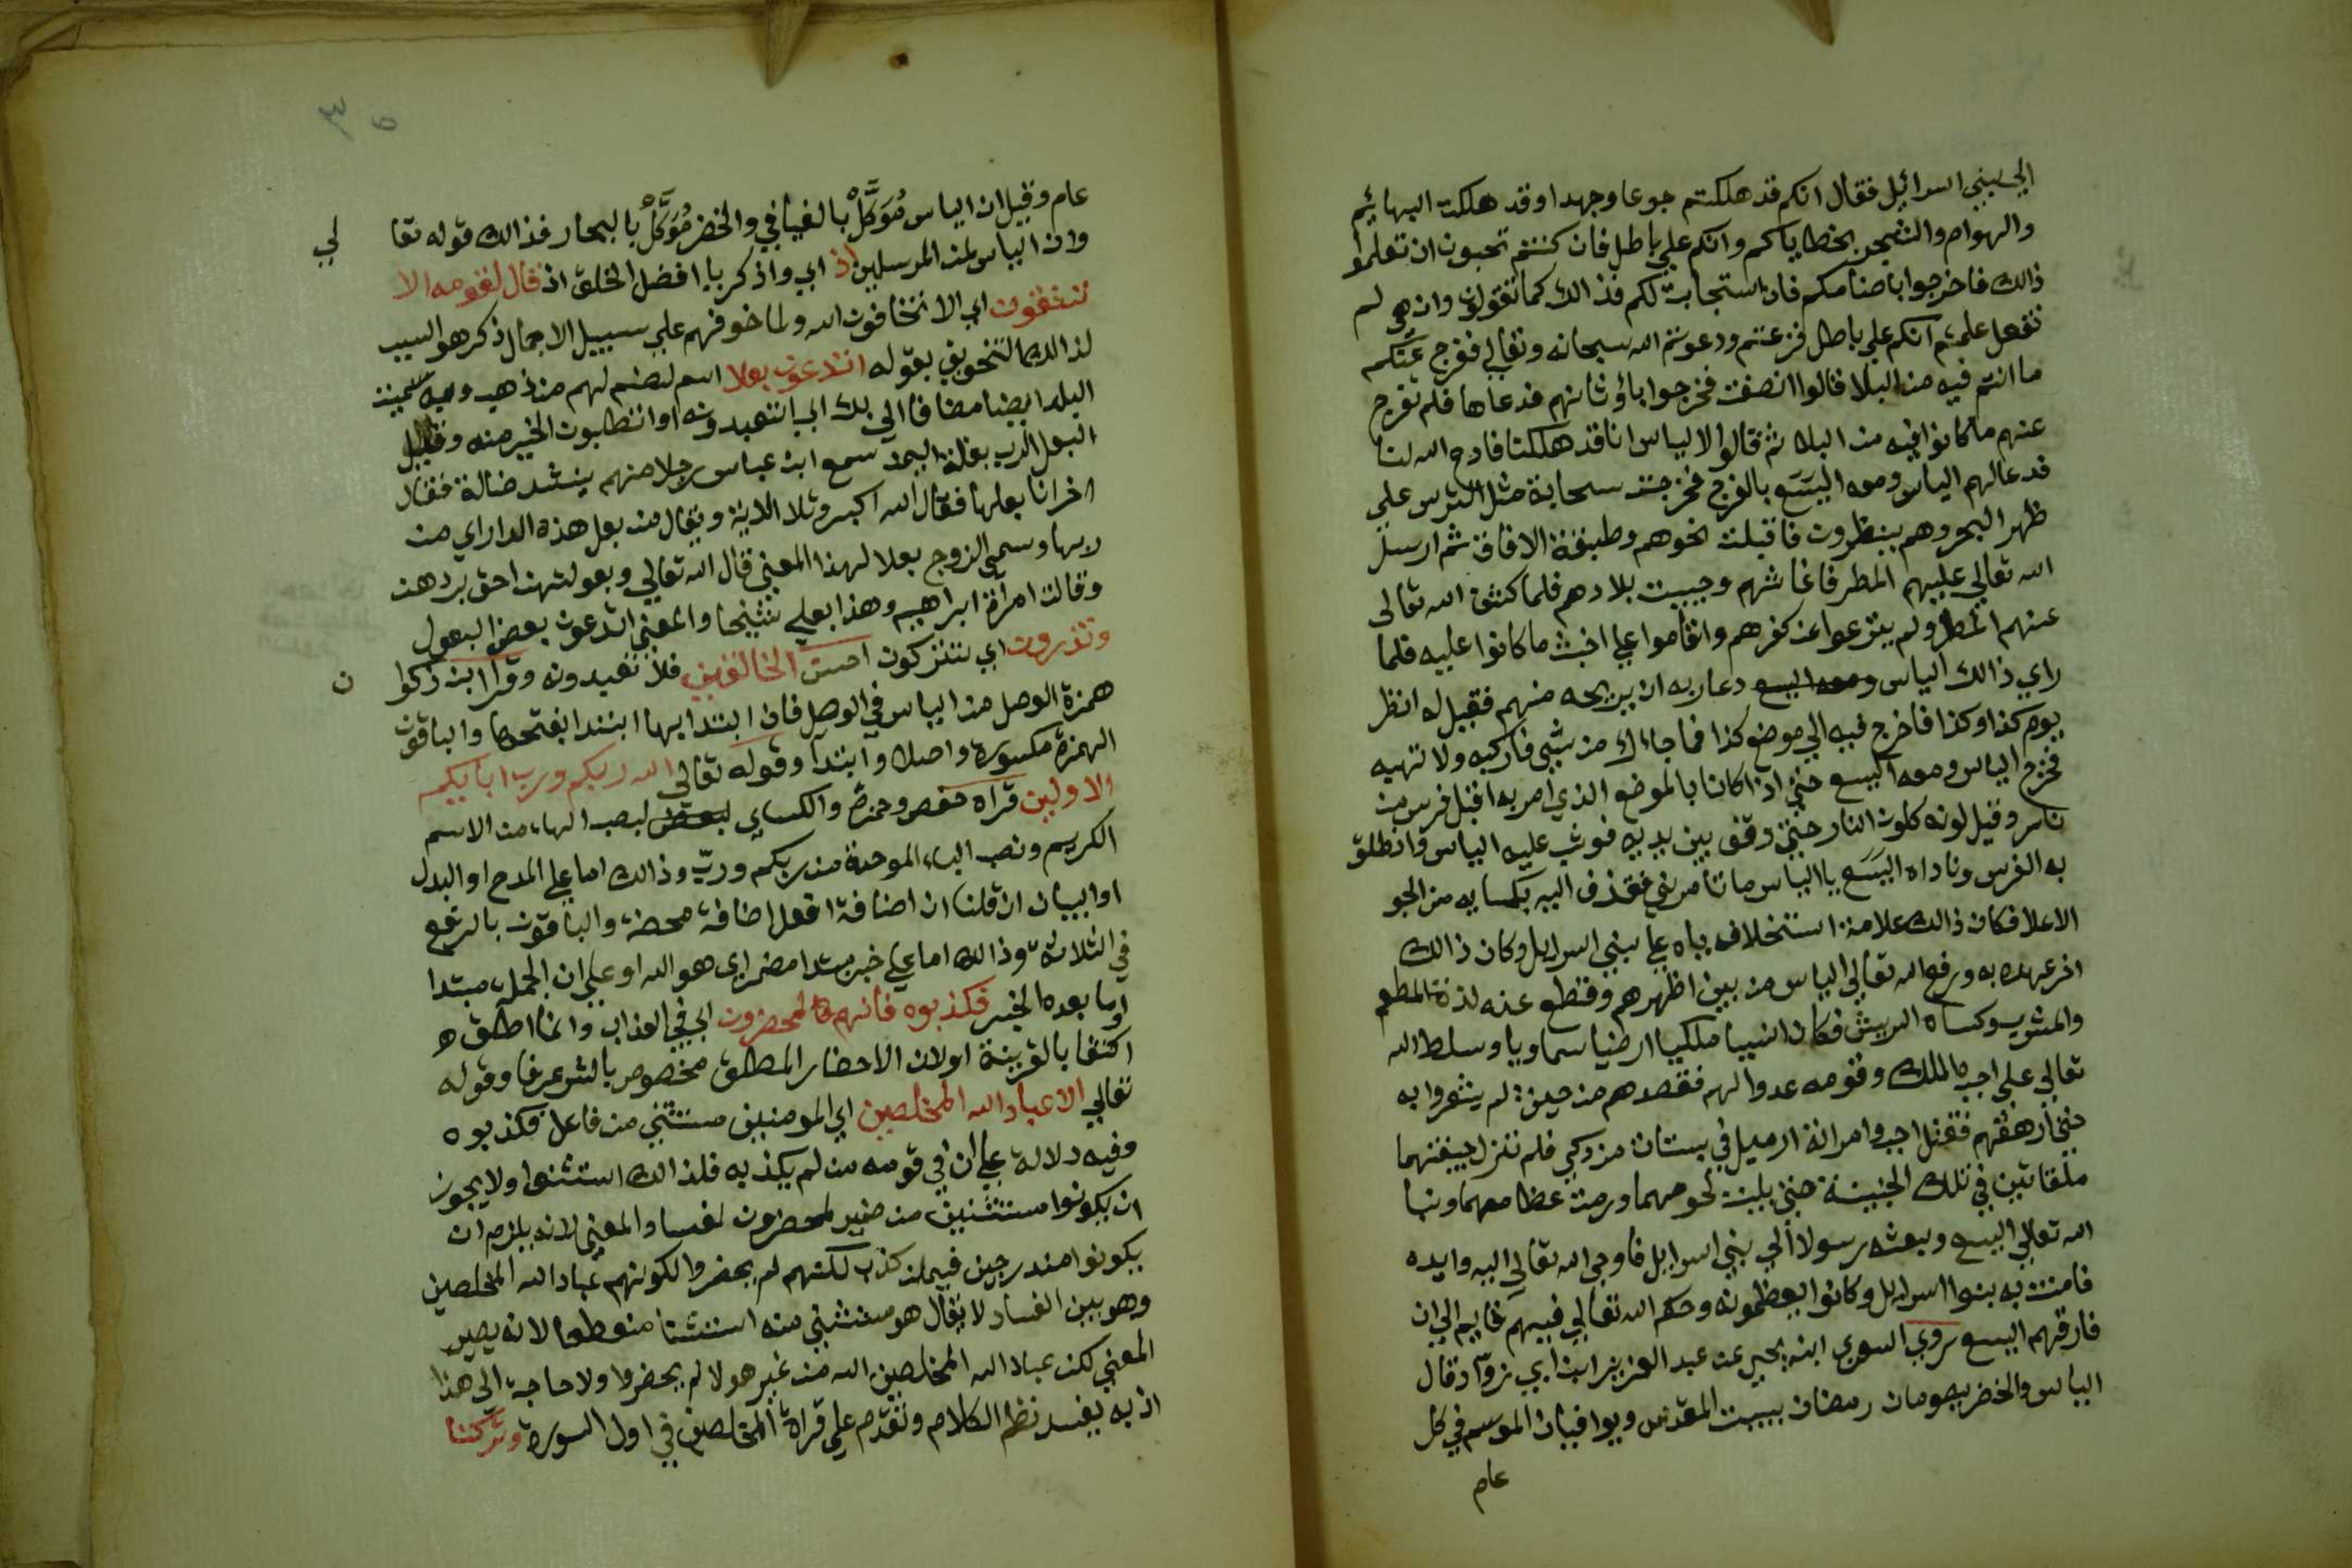 الي بني اسرائيل فقال انكم قد هلكتم جوعا وجهدا وقد هلكت البهائيم
والهوام والشجر بخطاياكم وانكم علي باطل فان كنتم تحبون ان تعلموا
ذالك فاخرجوا باصنامكم فان استجابت لكم فذالك كما تقولون وان هي لم
تفعل علمتم انكم علي باطل فنزعتم ودعوتم الله سبحانه وتعالي ففرج عنكم
ما انتم فيه من البلا قالوا انصفت فخرجوا باوثانهم فدعاها فلم تفرج
عنهم ما كانوا فيه من البلا ثم قالوا لالياس انا قد هلكنا فادع الله لنا
فدعا لهم الياس ومعه اليسع بالفرج فخرجت سحابة مثل الترس علي
ظهر البحر وهم ينظرون فاقبلت نحوهم وطبقة الافاق ثم ارسل
الله تعالي عليهم المطر فاغاثهم وحييت بلادهم فلما كشف الله تعالي
عنهم المطر ولم ينزعوا عن كفرهم واقاموا علي اخبث ما كانوا عليه فلما
راي ذالك الياس ومعه اليسع دعا ربه ان يريحه منهم فقيل له انظر
يوم كذا وكذا فاخرج فيه الي موضع كذا فما جاءك من شي فاركبه ولا تهبه
فخرج الياس ومعه اليسع حتي اذا كانا بالموضع الذي امر به اقبل فرس من
نار وقيل لونه كلون النار حتي وقف بين يديه فوثب عليه الياس وانطلق
به الفرس وناداه اليسع يا الياس ما تامرني فقذف اليه بكسايه من الجو
الاعلا فكان ذالك علامة استخلافه اياه علي بني اسرايل وكان ذالك
اخر عهده به ورفع الله تعالي الياس من بين اظهرهم وقطع عنه لذة المطعم
والمشرب وكساه الريش فكان انسيا ملكيا ارضيا سماويا وسلط الله
تعالي علي اجب الملك وقومه عدوا لهم فقصدهم من حيث لم يشعروا به
حتي ارهقهم فقتل اجب وامراته ازميل في بستان مزدكي فلم تزل جيفتهما
ملقاتين في تلك الجنينة حتي بليت لحومهما ورمت عظامهما ونبا
الله تعالي اليسع وبعثه رسولا الي بني اسرايل فاوحي الله تعالي اليه وايده
فامنت به بنوا اسرايل وكانوا يعظمونه وحكم الله تعالي فيهم قايم الي ان
فارقهم اليسع روي السري ابن يحيي عن عبد العزيز ابن ابي رواد قال
الياس والخضر يصومان رمضان ببيت المقدس ويوافيان الموسم في كل
عام
٣٥
عام وقيل ان الياس موكل بالفيافي والخضر موكل بالبحار فذالك قوله تعا لي
وان الياس لمن المرسلين اذ اي واذكر يا افضل الخلق اذ قال لقومه الا
تتقون اي الا تخافون الله ولما خوفهم علي سبيل الاجمال ذكر هو السبب
لذالك التخويف بقوله اتدعون بعلا اسم لصنم لهم من ذهب وبه سميت
البلد ايضا مضافا الي بك اي اتعبدونه او اتطلبون الخير منه وقيل
البعل الرب بلغة اليمن سمع ابن عباس رجلا منهم ينشد ضالة فقال
اخر انا بعلها فقال الله اكبر وتلا الاية ويقال من بعل هذه الدار اي من
ربها وسمي الزوج بعلا لهذا المعني قال الله تعالي وبعولتهن احق بردهن
وقالت امراة ابراهيم وهذا بعلي شيخا والمعني اتدعون بعض البعول
وتذرون اي تتركون احسن الخالقين فلا تعبدونه وقرا ابن ذكوا ن
همزة الوصل من الياس في الوصل فان ابتدا بها ابتدا بفتحها والباقون
الهمزة مكسورة واصلا وابتدا وقوله تعالي الله ربكم ورب ابايكم
الاولين قراه حفص وحمزة والكساي بنصب الهاء من الاسم
الكريم ونصب الباء الموحدة من ربكم ورب وذالك اما علي المدح او البدل
او البيان ان قلنا ان اضافة افعل اضافة محضة والباقون بالرفع
في الثلاثة وذالك اما علي خبر مبتدا مضمر اي هو الله او علي ان الجملة مبتدا
وما بعده الخبر فكذبوه فانهم لمحضرون اي في العذاب وانما اطلقه
اكتفا بالقرينة او لان الاحضار المطلق مخصوص بالشر عرفا وقوله
تعالي الا عباد الله المخلصين اي المومنين مستثني من فاعل فكذبوه
وفيه دلالة علي ان في قومه من لم يكذبه فلذالك استثنوا ولا يجوز
ان يكونوا مستثنين من ضمير لمحضرون لفساد المعني لانه يلزم ان
يكونوا مندرجين فيمن كذب لكنهم لم يحضروا لكونهم عباد الله المخلصين
وهو بين الفساد لا يقال هو مستثني منه استثنا منقطعا لانه يصير
المعني لكن عباد الله المخلصين الله من غير هولا لم يحضروا ولا حاجة الي هذا
اذ به يفسد نظم الكلام وتقدم علي قراة المخلصين في اول السورة وتركنا